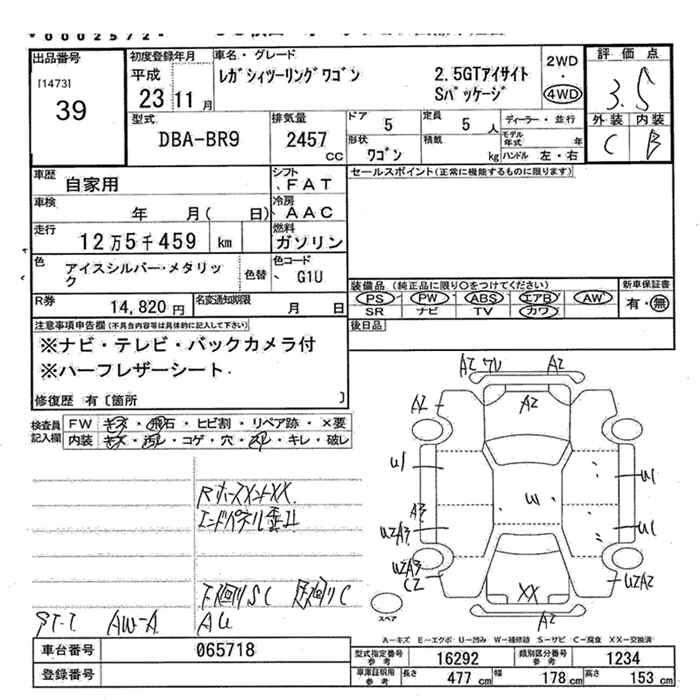 *00002572*
出品番号
[1473]
39
初度登録年月
平成
23 11 月
車名・グレード
レガシィツーリングワゴン
2.5GTアイサイト
Sパッケージ
2WD
・
4WD
評価点
3.5
外装 内装
C B
型式
DBA-BR9
排気量
2457
CC
ドア
5
定員
5 人
形状
ワゴン
積載
kg
ディーラー・並行
モデル年式 年
ハンドル 左・右
車歴
自家用
シフト
FAT
車検
年 月( 日)
冷房
AAC
走行
12万5千459 km
燃料
ガソリン
色
アイスシルバー・メタリック
色替
色コード
G1U
R券
14,820 円
名変通知期限
月 日
セールスポイント(正常に機能するものに限ります)
装備品 (純正品に限り○をつけてください)
PS PW ABS エアB AW
SR ナビ TV カワ
新車保証書
有・無
後日品
注意事項申告欄(不具合内容等は具体的に記入して下さい)
※ナビ・テレビ・バックカメラ付
※ハーフレザーシート.
修復歴 有〔箇所 〕
検査員記入欄
FW キズ・飛石・ヒビ割・リペア跡・×要
内装 キズ・汚れ・コゲ・穴・スレ・キレ・破レ
A2
A2
A2
A2
U1
U1
W
A3
U2A3
U1
U2A3
C2
U2A2
XX
A2
スペア
下廻りSC
AW-A
A-キズ E-エクボ U-凹み W-補修跡 S-サビ C-腐食 XX-交換済
車台番号
065718
登録番号
型式指定番号 参考
16292
類別区分番号 参考
1234
車庫証明用 参考
長さ 477 cm
幅 178 cm
高さ 153 cm